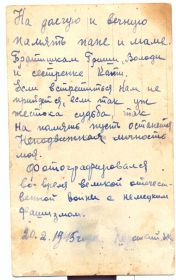 На долгую и вечную
память папе и маме.
Братишкам Грише, Володи
и сестренке Кати.
Если встретиться нам не
придется, если так уж
жестока судьба, так
на память пусть останется
Неподвижная личность
моя.
Фотографировался
во время великой отечес-
твенной войны с немецким
фашизмом.
20.2.1945 года